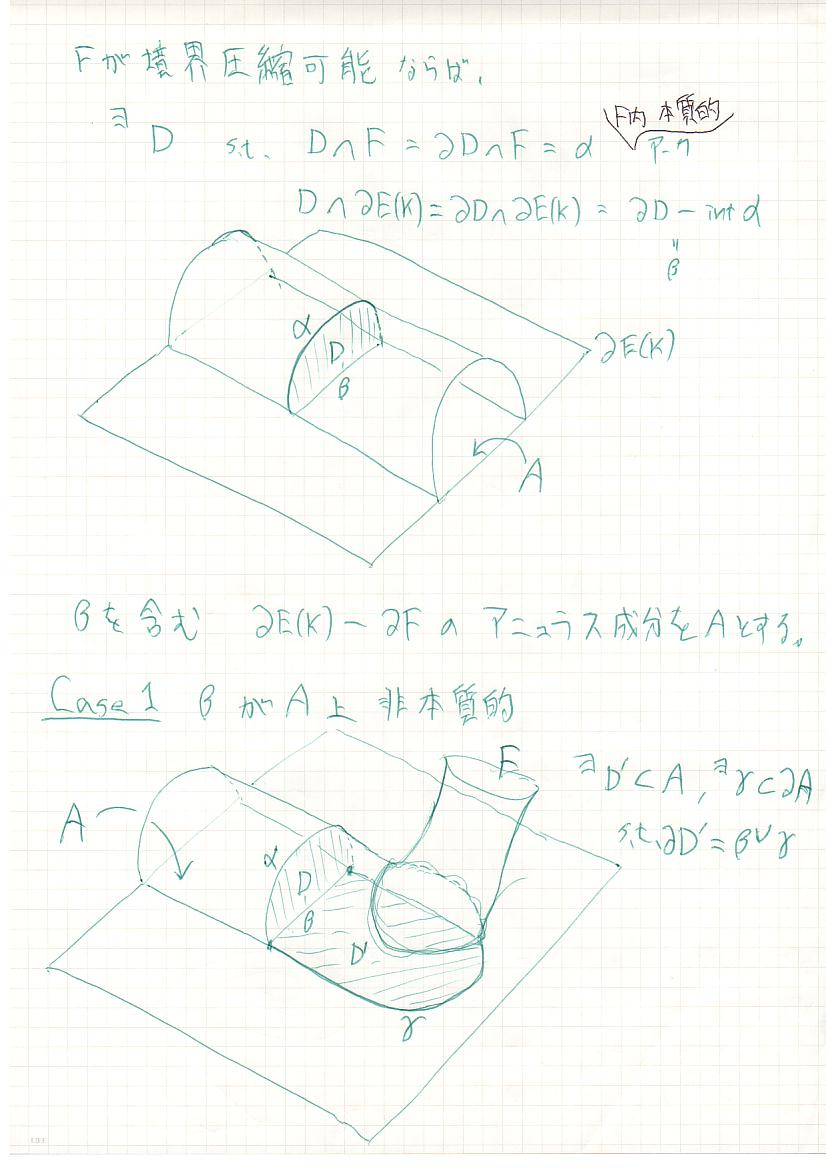 Fが境界圧縮可能ならば,
∃D s.t. D∩F = ∂D∩F = α F内 本質的 アーク
D∩∂E(K) = ∂D∩∂E(K) = ∂D − int α
"
β
α
D
β
∂E(K)
A
βを含む ∂E(K) − ∂F の アニュラス成分をAとする。
Case 1 β が A 上 非本質的
F
∃D'⊂A, ∃γ⊂∂A
s.t. ∂D' = β∪γ
A
α
D
β
D'
γ